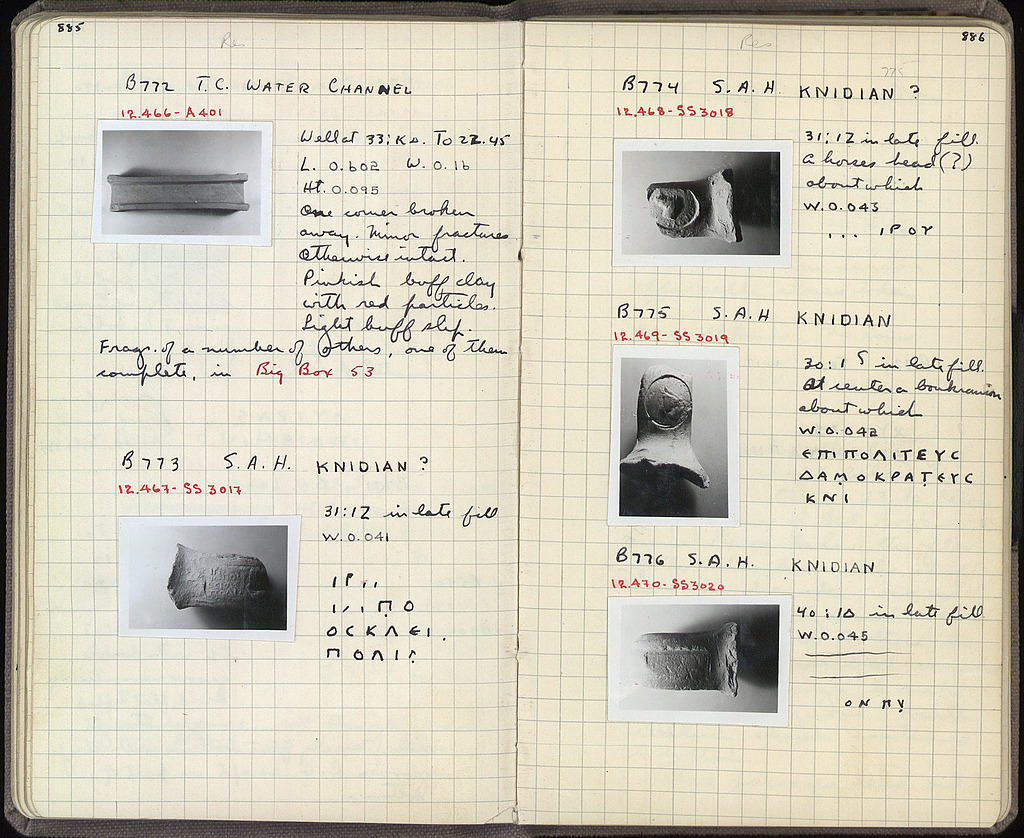 885
Res
B772 T.C. WATER CHANNEL
12.466-A401
Well at 33:KΔ. To 22.45
L. 0.602 W. 0.16
Ht. 0.095
One corner broken
away. Minor fractures
Otherwise intact.
Pinkish buff clay
with red particles.
Light buff slip.
Frags. of a number of others, one of them
complete, in Big Box 53
B773 S.A.H. KNIDIAN?
12.467-SS3017
31:ΙΖ in late fill
W.0.041
ΙΡ..
ΠΟ
ΟCΚΛΕΙ.
886
Res
775
B774 S.A.H. KNIDIAN?
12.468-SS3018
31:ΙΖ in late fill.
a horses head(?)
about which
W.0.043
... ΙΡΟΥ
B775 S.A.H KNIDIAN
12.469-SS3019
in late fill.
At center a boukranion
about which
W.0.042
ΕΠΙΠΟΛΙΤΕΥC
ΔΑΜΟΚΡΑΤΕΥC
ΚΝΙ
B776 S.A.H. KNIDIAN
12.470-SS3020
40:ΙΔ in late fill
W.0.045